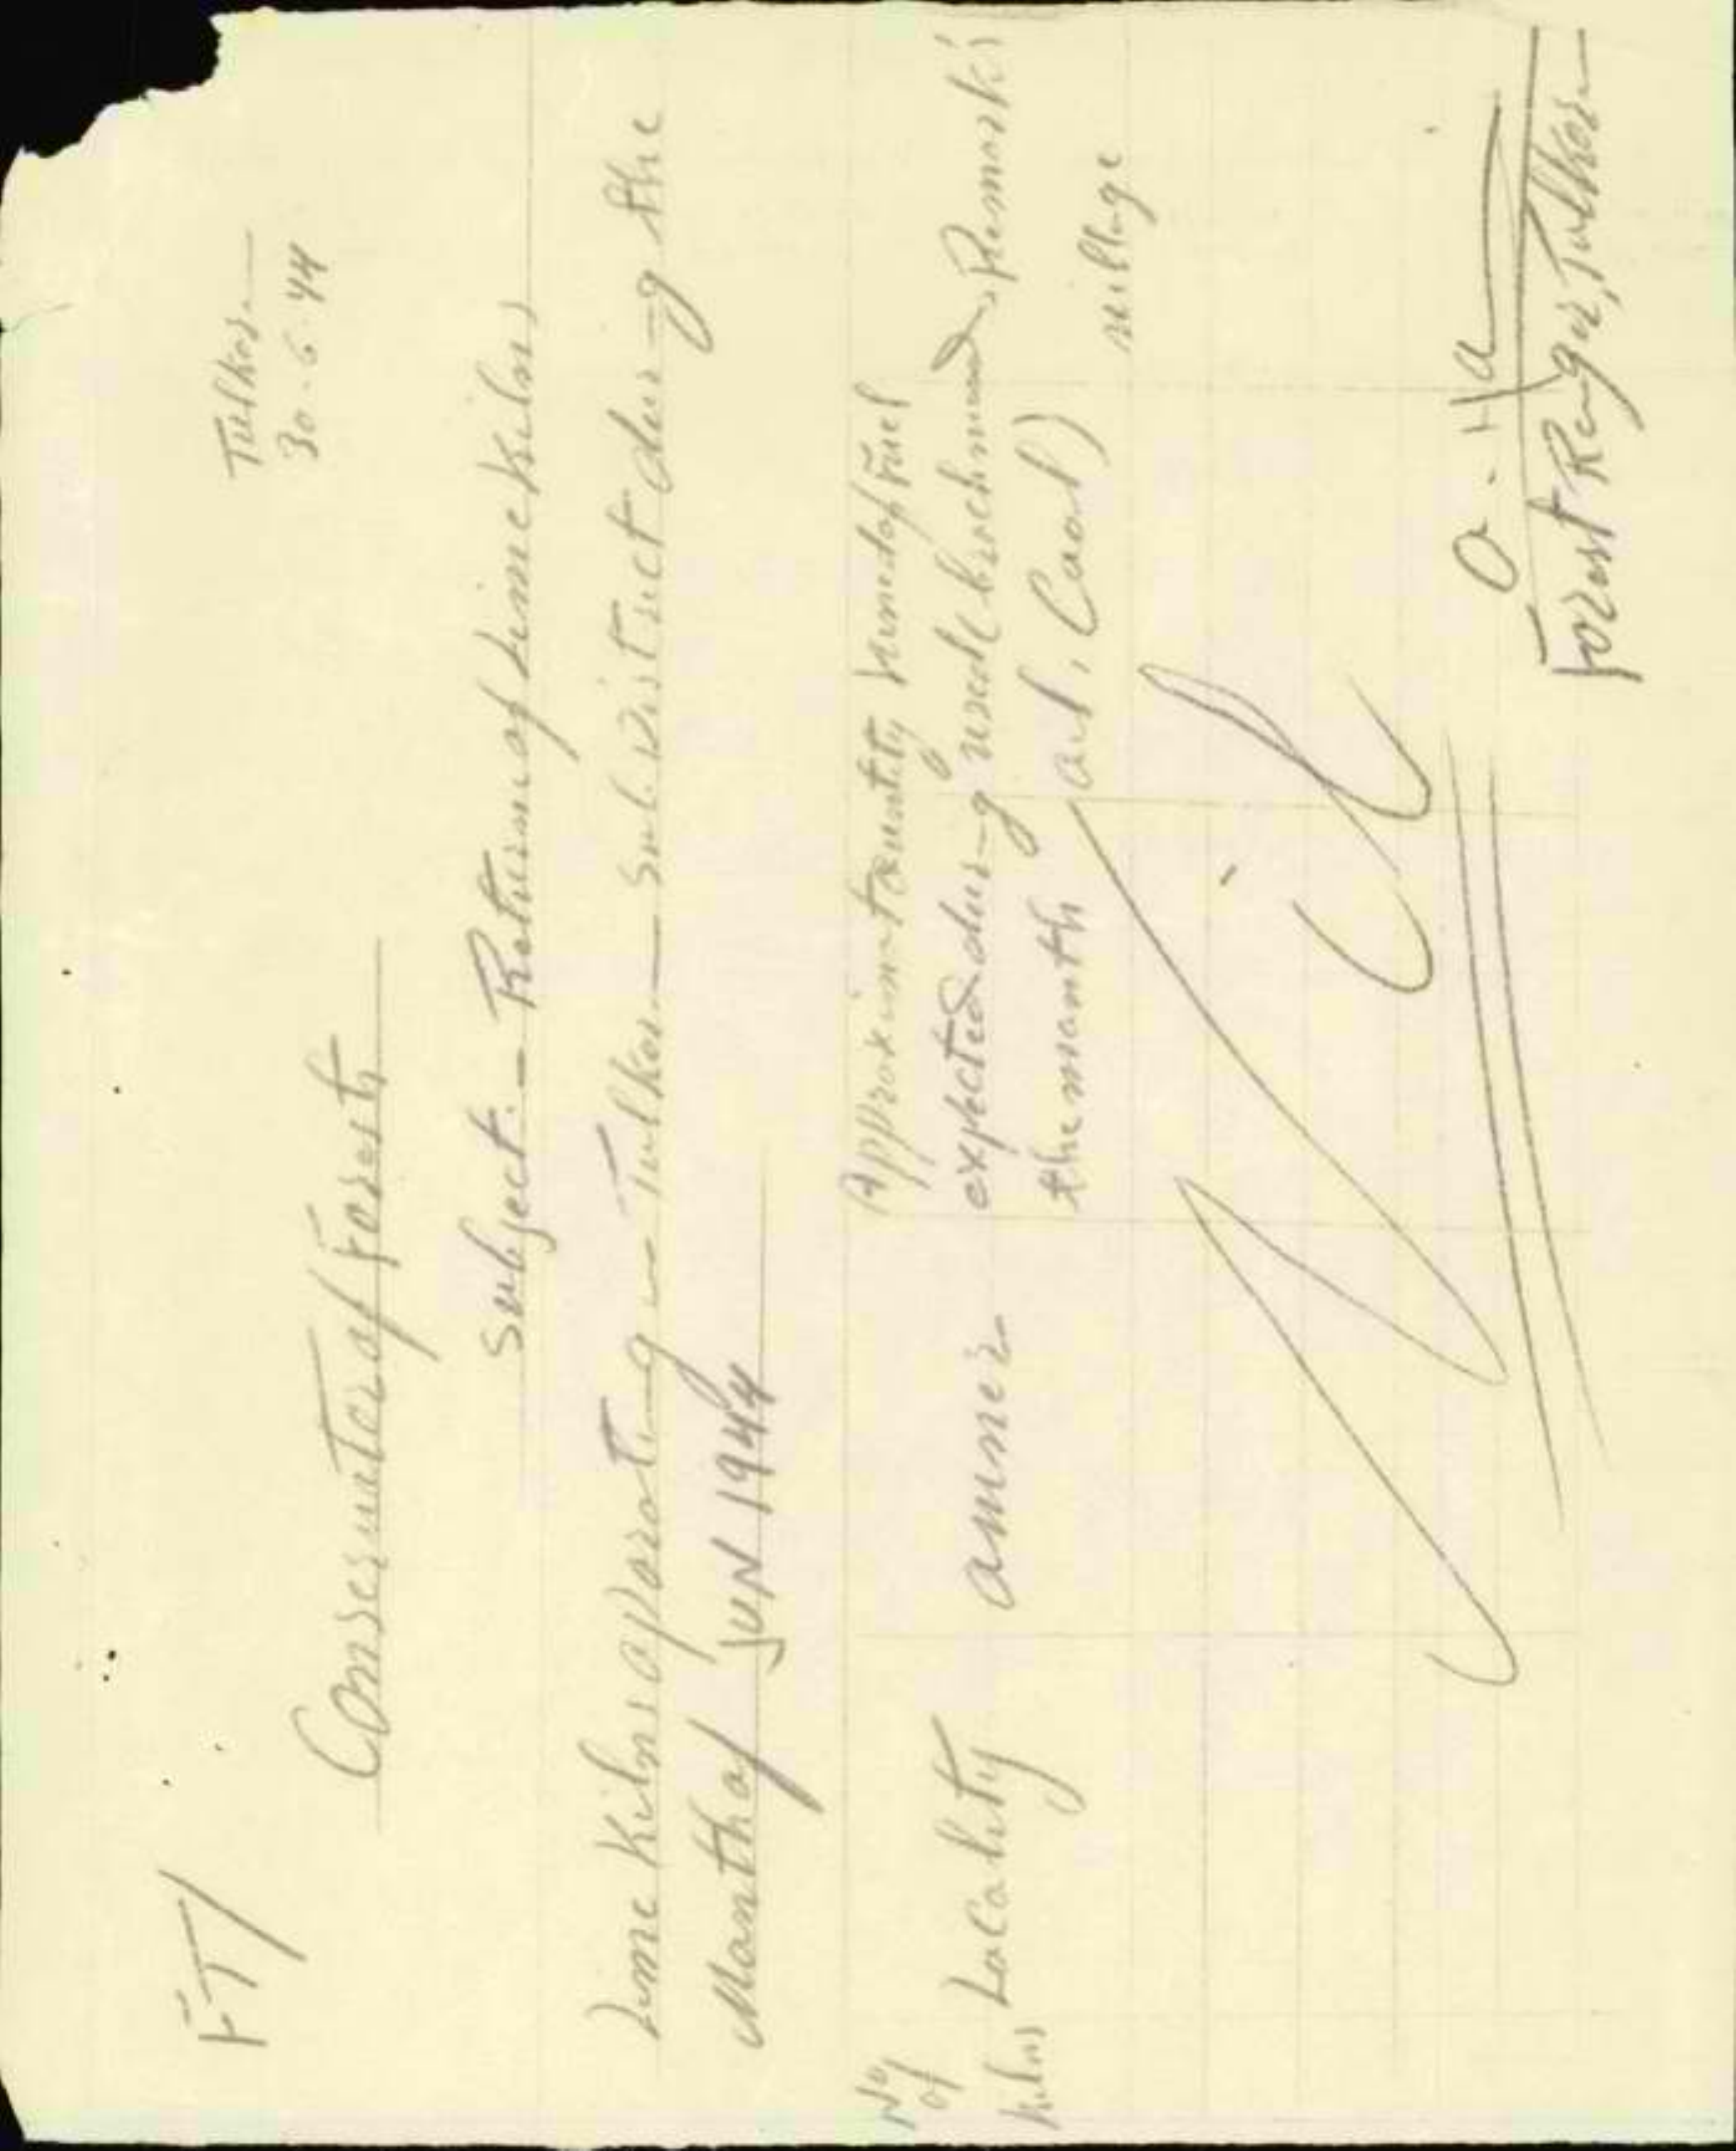 FT/
Tulkarm
30.6.44
Conservator of Forests
Subject:- Return of Lime Kilns
Lime Kilns aporating in Tulkarm Sub District during the
Month of JUN 1944
No of Kilns
Locality
owner
Approximt Quantity expected during the month
kined of Fuel used (brochmand oil, Coal)
Remarks village
Nil
Forest Ranger, Tulkarm